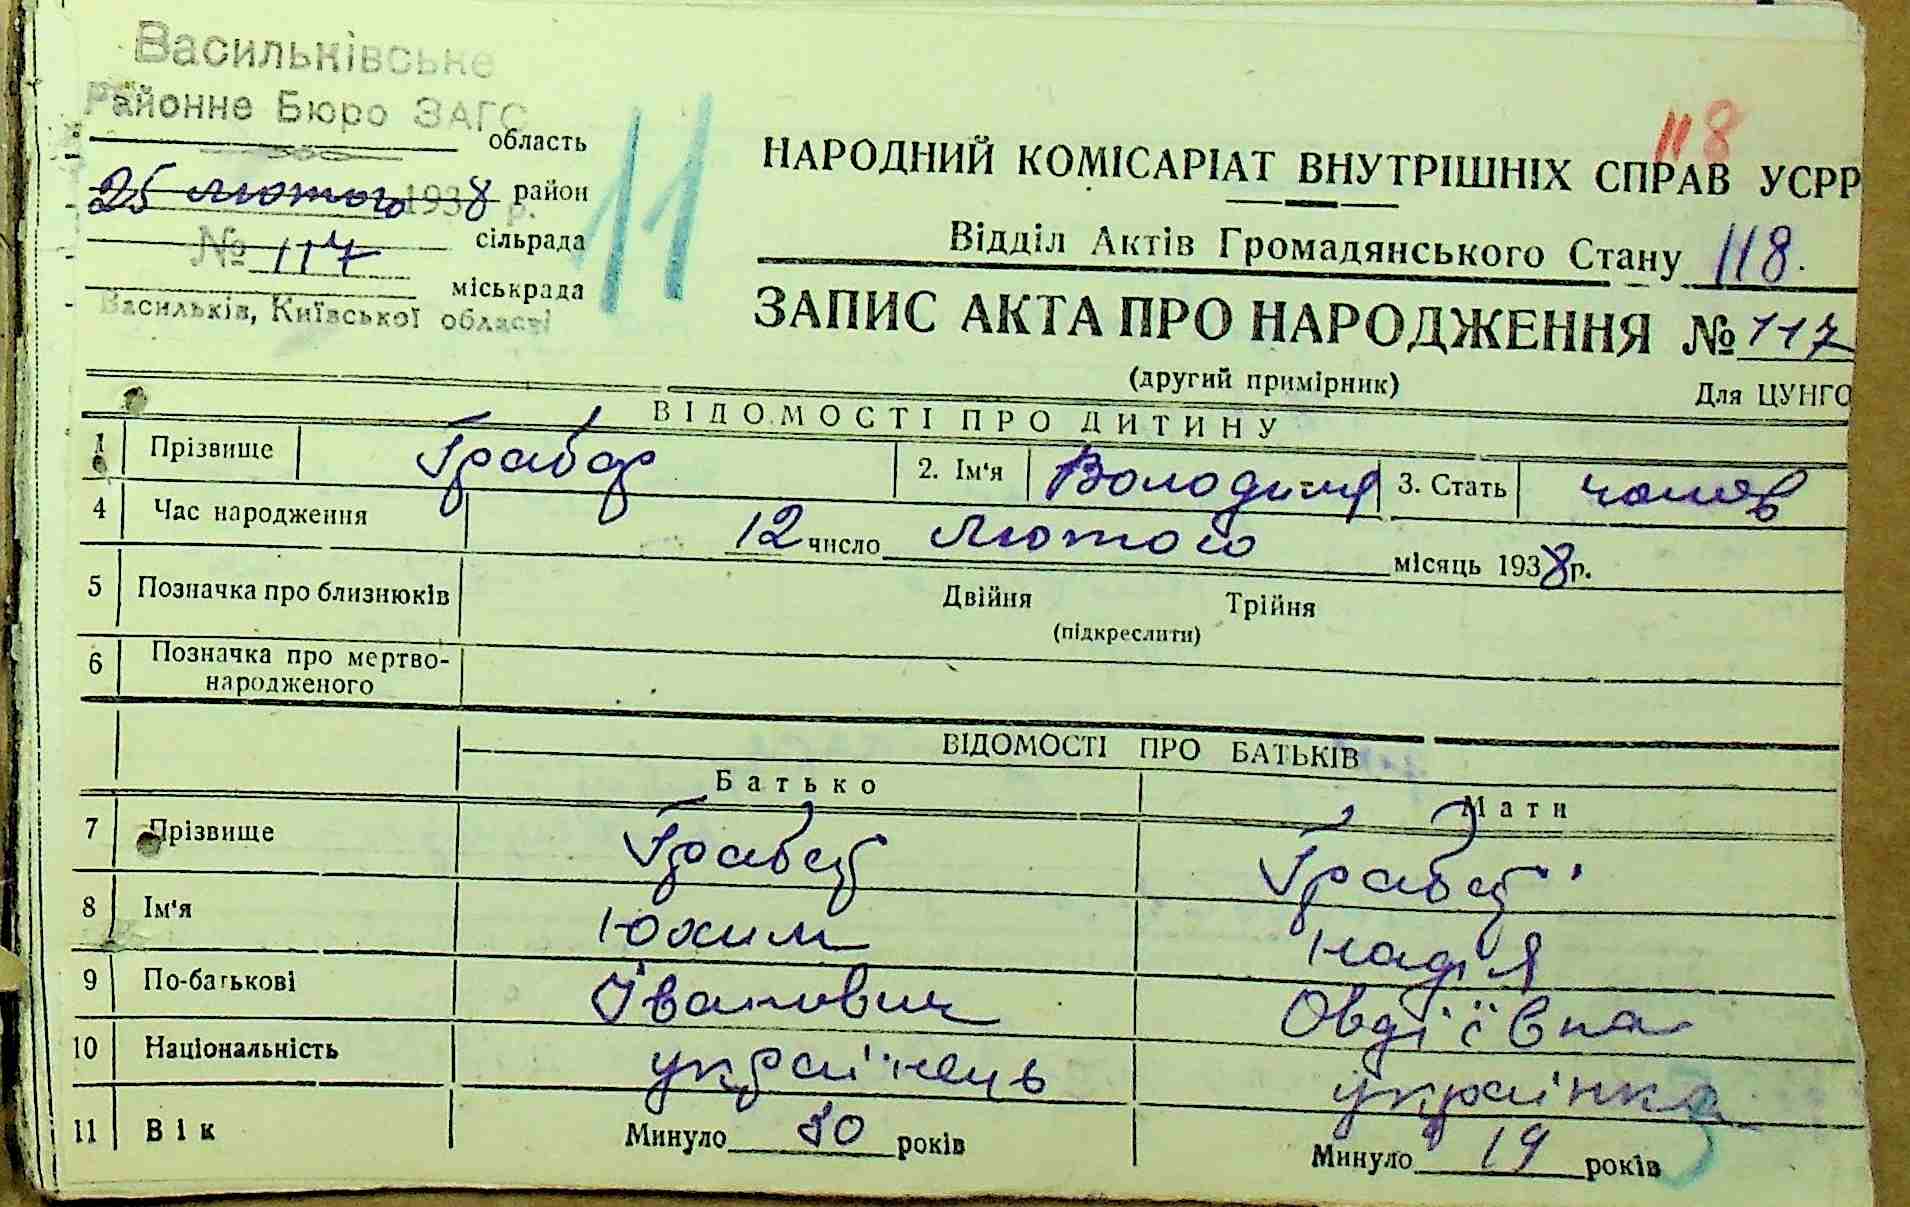 Васильківське
Районне Бюро ЗАГС
область
25 лютого 1938 р. район
сільрада
№ 117
міськрада
Васильків, Київської області
11
118
НАРОДНИЙ КОМІСАРІАТ ВНУТРІШНІХ СПРАВ УСРР
Відділ Актів Громадянського Стану 118.
ЗАПИС АКТА ПРО НАРОДЖЕННЯ № 117
(другий примірник) Для ЦУНГО
ВІДОМОСТІ ПРО ДИТИНУ
1 Прізвище Грабар 2. Ім'я Володимир 3. Стать чолов
4 Час народження 12 число лютого місяць 1938 р.
5 Позначка про близнюків Двійня Трійня
(підкреслити)
6 Позначка про мертво-
народженого
ВІДОМОСТІ ПРО БАТЬКІВ
Батько Мати
7 Прізвище Грабар Грабар
8 Ім'я Юхим Надія
9 По-батькові Іванович Овдіївна
10 Національність українець українка
11 Вік Минуло 30 років Минуло 19 років